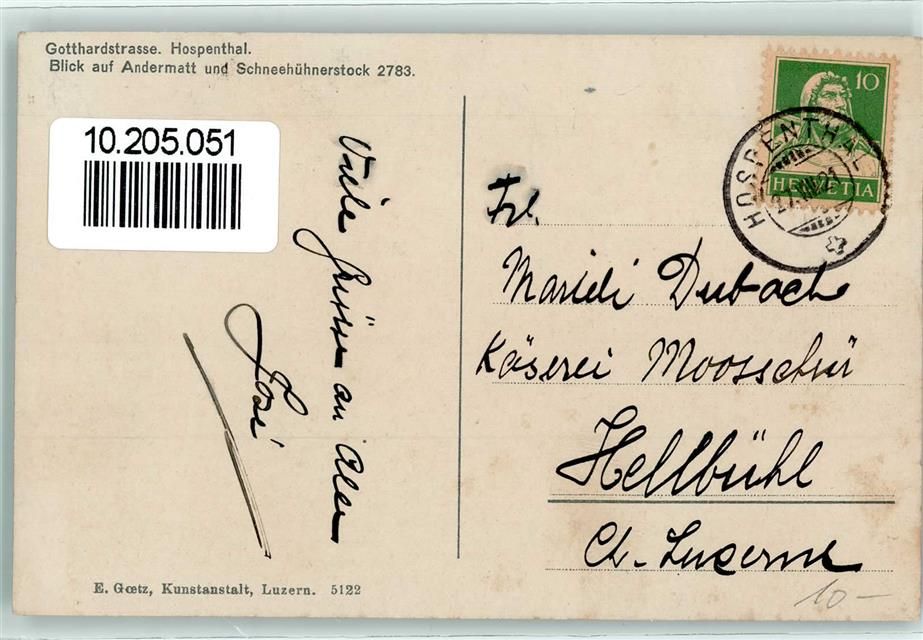 Gotthardstrasse. Hospenthal.
Blick auf Andermatt und Schneehühnerstock 2783.
10.205.051
Viele Grüsse an Alle
José
10
HELVETIA
HOSPENTHAL
Frl.
Marieli Dubach
Käserei Moosschür
Hellbühl
Ct. Luzern
E. Gœtz, Kunstanstalt, Luzern. 5122
10-